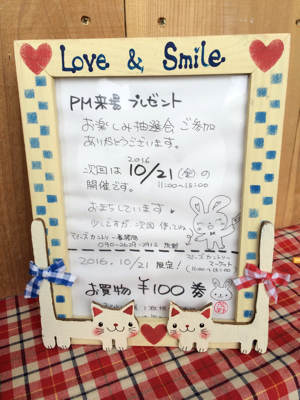 Love & Smile
PM来場 プレゼント
お楽しみ抽選会 ご参加
ありがとうございます。
2016
次回は 10/21(金)の
開催です。 11:00〜15:00
おまちしています
少しですが 次回 使ってね
マミーズカントリー
090-2029-2912
2016.10/21 限定!
マミーズカントリー
マーケット
11:00〜15:00
お買物 ¥100 券